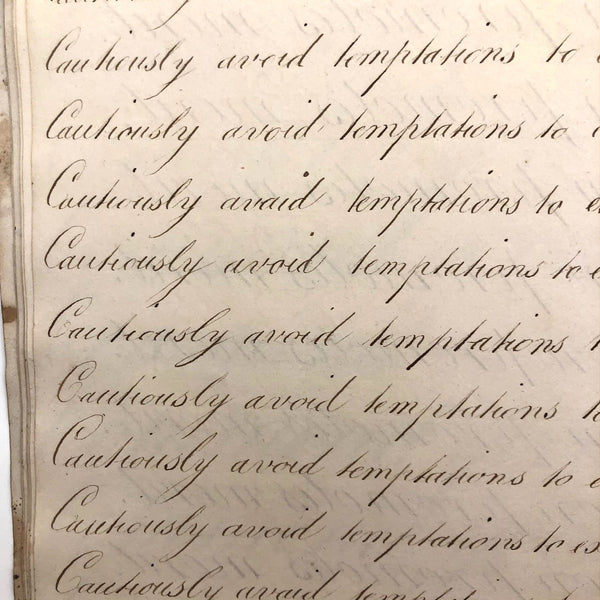 Cautiously avoid temptations to
Cautiously avoid temptations to
Cautiously avoid temptations to ex
Cautiously avoid temptations to e
Cautiously avoid temptations
Cautiously avoid temptations to
Cautiously avoid temptations to
Cautiously avoid temptations to ex
Cautiously avoid temptations